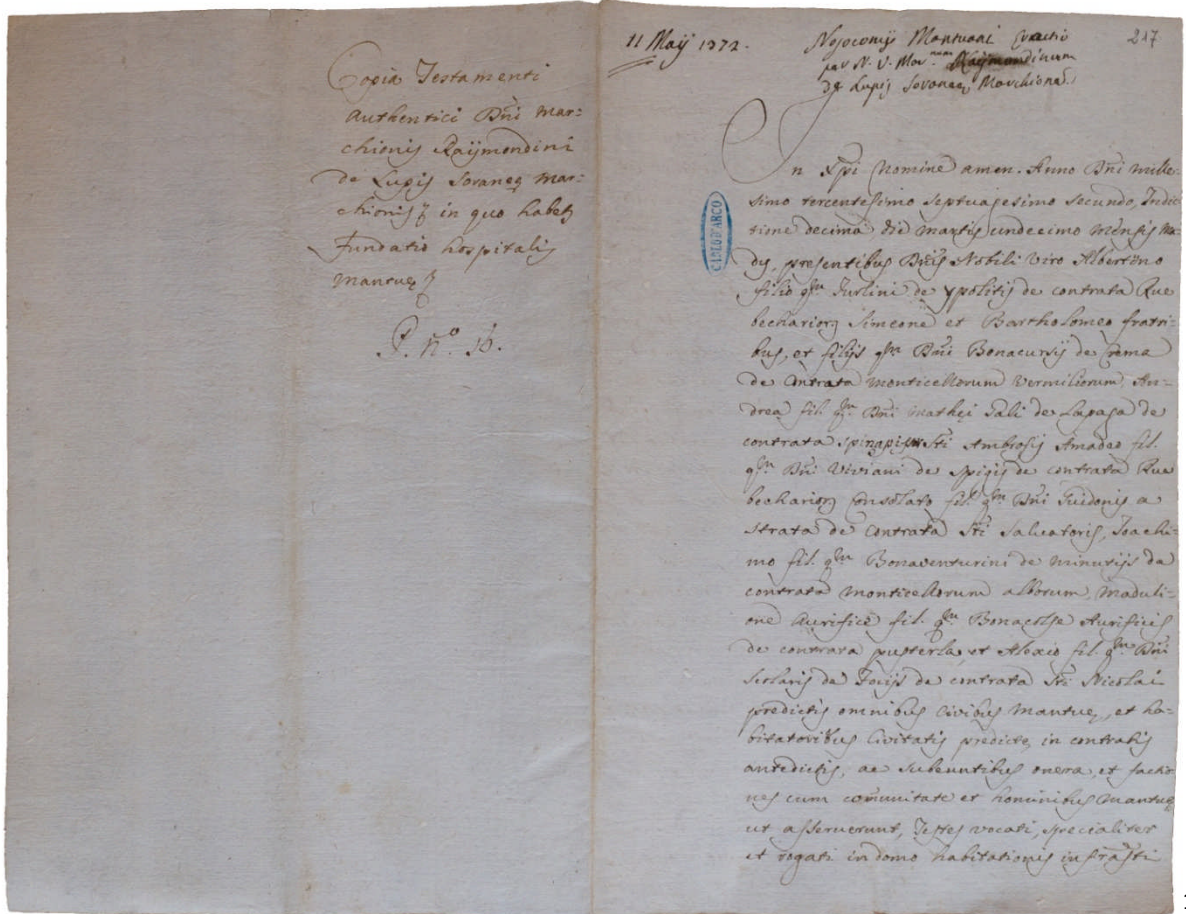 Copia Testamenti
Authentici Dñi Mar:
chionis Raÿmondini
de Lupis Soraneę Mar:
chionis in quo habetʒ
Fundatio hospitalis
Mantuę
P. Nº. 16.
11 Maÿ 1372.
217
Nosocomij Mantuani Erectio
per N. V. Mar. Raÿmondinum
De Lupis Soraneę Marchionē
In Xpi Nomine amen. Anno Dñi mille:
simo tercentesimo septuagesimo secundo, Indic
tione decima die martis undecimo mensis Ma
dij, presentibus Dñis Nobili Viro Albertino
filio qm Jurlini de ypolitis de contrata Rue
bechariorʒ Simeone et Bartholomeo fratri:
bus, et filijs qm Dñi Bonacursij de Crema
de Contrata monticellorum Vermiliorum, An=
drea fil. qm Dñi Mathęi Sali de Lapaga de
contrata Sti Ambrosij Amadeo fil.
qm Dñi Viviani de Spigis de contrata Rue
bechariorʒ Consolato fil. qm Dñi Guidonis a
Strata de Contrata Sti Salvatoris, Joachi:
mo fil. qm Bonaventurini de minutijs de
contrata monticellorum alborum, Maduli:
one Aurifice fil. qm Bonacolse Aurificis
de contrata pusterla, et Aloxio fil. qm Dñi
Scolaris de Focijs de contrata Sti Nicolai
predictis omnibus Civibus Mantuę, et ha:
bitatoribus Civitatis predictę, in contratis
antedictis, ac subeuntibus onera, et factio
nes cum comunitate et hominibus Mantuę
ut asseruerunt, Testes vocati, specialiter
et rogati in domo habitationis infrasti
CARLO D'ARCO